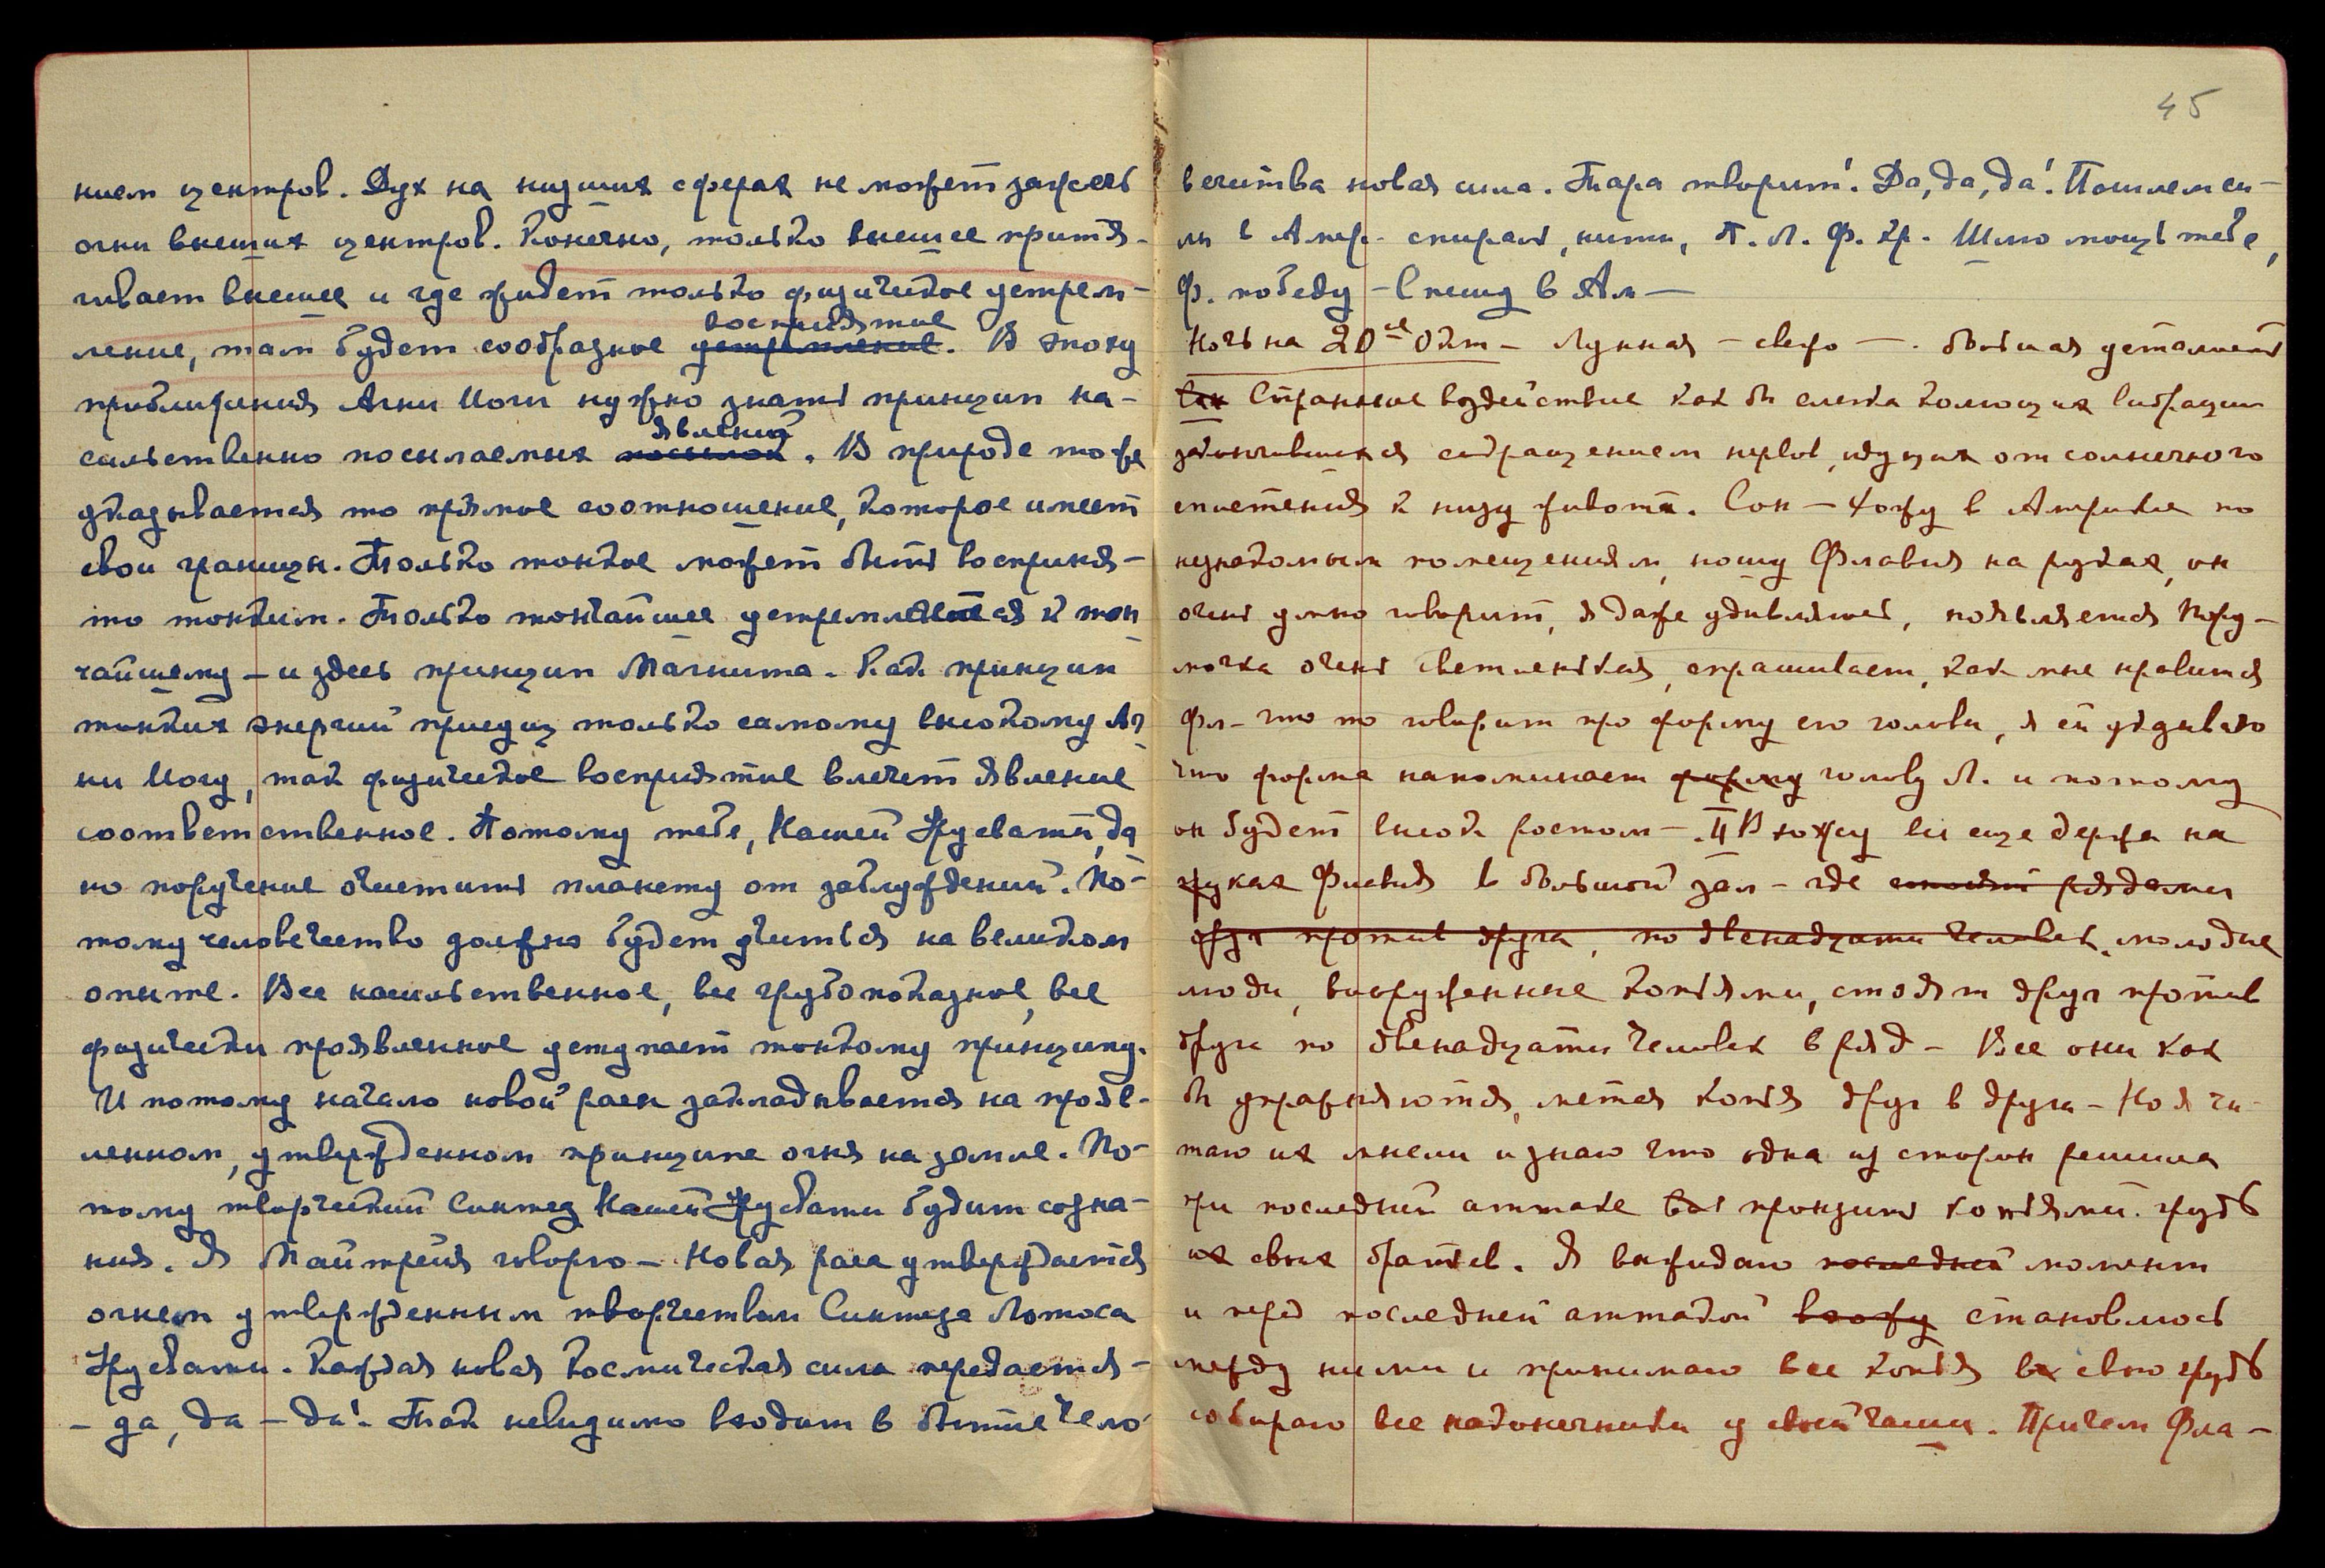 нием центров. Дух на низших сферах не может зажечь
огни высших центров. Конечно, только высшее притя-
гивает высшее и где живет только физическое устрем-
восприятие
ление, там будет сообразное устремление. В эпоху
приближения Агни Йоги нужно знать принцип на-
явлений
сильственно посылаемых посылок. В природе тоже
указывается то прямое соотношение, которое имеет
свои границы. Только тонкое может быть восприня-
то тонким. Только тончайшее устремляется к тон
чайшему – и здесь принцип Магнита. Как принцип
тонких энергий присущ только самому высокому Аг
ни Йогу, так физическое восприятие влечет явление
соответственное. Потому тебе, Нашей Урусвати, да
но поручение очистить планету от заблуждений. По-
тому человечество должно будет учиться на великом
опыте. Все насильственное, все грубопоказное, все
физически проявленное уступает тонкому принципу.
И потому начало новой расы закладывается на прояв-
ленном, утвержденном принципе огня на земле. По-
тому творческий Синтез Нашей Урусвати будит созна-
ния. Я Майтрейя говорю – Новая раса утверждается
огнем утвержденным творчеством Синтеза Лотоса
Урусвати. Каждая новая космическая сила передается –
– да, да – да! Так невидимо входит в бытие чело-
45
вечества новая сила. Тара творит! Да, да, да! Пошлем си-
лы в Амер. спирали, нити, П. Л. Ф. Хр. Шлю мощь тебе,
Ф. победу – Спешу в Ам –
Ночь на 20ое Окт – Лунная – свежо –. большая усталость
Странное воздействие как бы слегка колющих вибрации
закончившихся сокращением нервов, идущих от солнечного
сплетения к низу живота. Сон – хожу в Америке по
незнакомым помещениям, ношу Флавия на руках, он
очень умно говорит, я даже удивляюсь, появляется Пору-
мочка очень светленькая, спрашивает, как мне нравится
Фл – что то говорит про форму его головы, я ей указываю
что форма напоминает форму голову Л. и потому
он будет высок ростом –. II Вхожу все еще держа на
руках Флавия в большой зал – где стоят рядами
друг против друга, по двенадцати человек, молодые
люди, вооруженные копьями, стоят друг против
друга по двенадцати человек в ряд – Все они как
бы упражняются, метая копья друг в друга – Но я чи-
таю их мысли и знаю что одна из сторон решила
при последней аттаке пронзить копьями грудь
их своих братьев. Я выжидаю последней момент
и перед последней аттакой вхожу становлюсь
между ними и принимаю все копья в свою грудь
собираю все наконечники у своей чаши. Причем Фла-